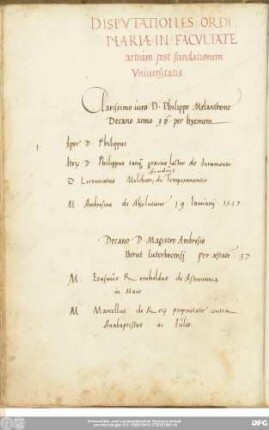 DISPVTATIONES ORDI
NARIÆ IN FACVLTATE
artium post fundationem
Vniuersitatis
Clarissimo uiro D. Philippo Melanthone
Decano anno 36 per hyemem
D. Philippus
D. Philippus lector de Iuramento
D. Licentiatus Melchior de Temperamentis
M. Ambrosius de Absolutione 19 Ianuarij 1537
Decano D. Magistro Ambrosio
Bernt Iuterbocensi per æstatem 37
M. Erasmus Reinholdus de Astronomia
in Maio
M. Marcellus de Regi proprietate contra
Anabaptistas in Iulio